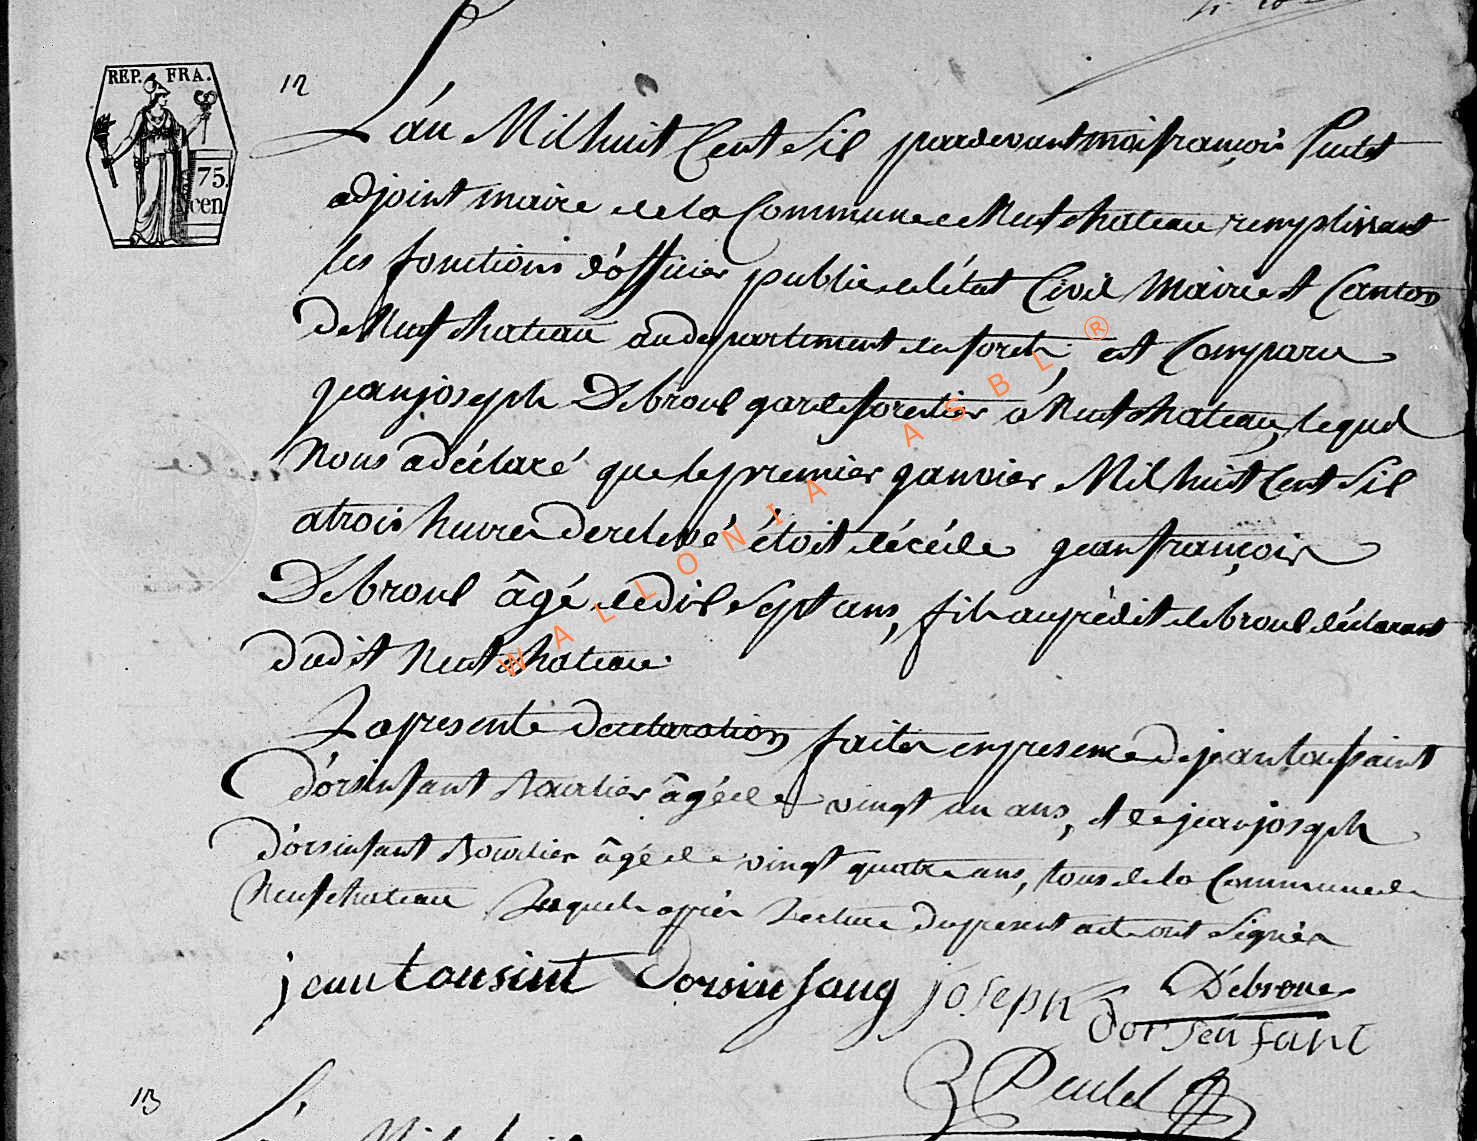 REP. FRA.
75.
cen
12
L'an Mil huit Cent Six pardevant moi françois
adjoint maire de la Commune de Neufchateau remplissant
les fonctions d'officier public de l'état Civil Mairie et Canton
de Neufchateau au departement des forets, est Comparu
jean joseph Debroux garde forestier à Neufchateau, lequel
Nous a déclaré que le premier janvier Mil huit Cent Six
a trois heures de relevé étoit décédé jean françois
Debroux âgé de dix sept ans, fils au prédit debroux déclarant
dudit Neufchateau.
La presente declaration faite en presence de jean toussaint
d'orsinfant âgé de vingt un ans, et de jean joseph
d'orsinfant âgé de vingt quatre ans, tous de la Commune de
Neufchateau lesquels après lecture du present acte ont signés
jean tousint dorsinfang joseph
Débroux
dorsenfant
13
WALLONIA ASBL ®